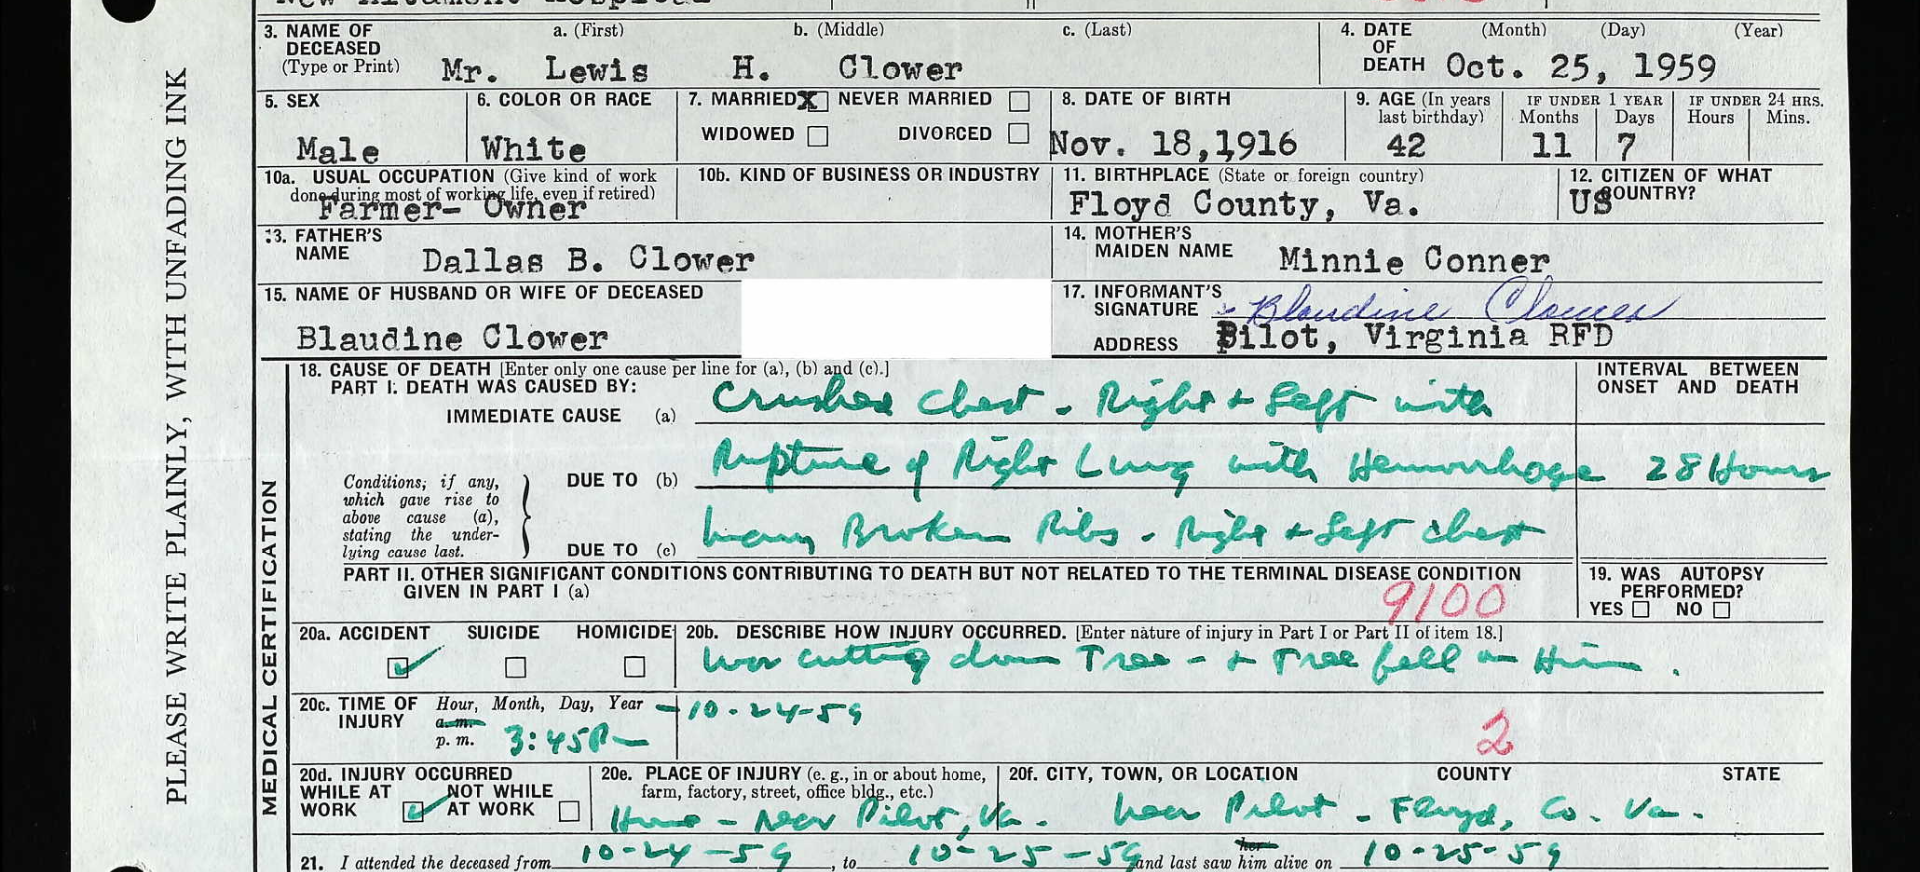 New Altamont Hospital
3. NAME OF DECEASED (Type or Print) a. (First) b. (Middle) c. (Last)
Mr. Lewis H. Clower
4. DATE OF DEATH (Month) (Day) (Year)
Oct. 25, 1959
5. SEX
Male
6. COLOR OR RACE
White
7. MARRIED X NEVER MARRIED
WIDOWED DIVORCED
8. DATE OF BIRTH
Nov. 18,1916
9. AGE (In years last birthday)
42
IF UNDER 1 YEAR
Months Days
11 7
IF UNDER 24 HRS.
Hours Mins.
10a. USUAL OCCUPATION (Give kind of work
done during most of working life, even if retired)
Farmer- Owner
10b. KIND OF BUSINESS OR INDUSTRY
11. BIRTHPLACE (State or foreign country)
Floyd County, Va.
12. CITIZEN OF WHAT COUNTRY?
US
13. FATHER'S NAME
Dallas B. Clower
14. MOTHER'S MAIDEN NAME
Minnie Conner
15. NAME OF HUSBAND OR WIFE OF DECEASED
Blaudine Clower
17. INFORMANT'S SIGNATURE Blaudine Clower
ADDRESS Pilot, Virginia RFD
18. CAUSE OF DEATH [Enter only one cause per line for (a), (b) and (c).]
PART I. DEATH WAS CAUSED BY:
IMMEDIATE CAUSE (a) Crushed Chest - Right + Left with
INTERVAL BETWEEN ONSET AND DEATH
Conditions, if any, which gave rise to above cause (a), stating the underlying cause last.
DUE TO (b) Rupture of Right Lung with Hemorrhage 28 Hours
DUE TO (c) Many Broken Ribs - Right + Left chest
PART II. OTHER SIGNIFICANT CONDITIONS CONTRIBUTING TO DEATH BUT NOT RELATED TO THE TERMINAL DISEASE CONDITION
GIVEN IN PART I (a)
9100
19. WAS AUTOPSY PERFORMED?
YES NO
20a. ACCIDENT SUICIDE HOMICIDE
20b. DESCRIBE HOW INJURY OCCURRED. [Enter nature of injury in Part I or Part II of item 18.]
Was cutting down Tree - + Tree fell on Him.
20c. TIME OF INJURY Hour, Month, Day, Year
a.m.
p. m. 3:45 Pm
- 10-24-59
2
20d. INJURY OCCURRED
WHILE AT WORK NOT WHILE AT WORK
20e. PLACE OF INJURY (e. g., in or about home,
farm, factory, street, office bldg., etc.)
Home - Near Pilot, Va.
20f. CITY, TOWN, OR LOCATION COUNTY STATE
near Pilot - Floyd, Co. Va.
21. I attended the deceased from 10-24-59, to 10-25-59 and last saw her him alive on 10-25-59
MEDICAL CERTIFICATION
PLEASE WRITE PLAINLY, WITH UNFADING INK